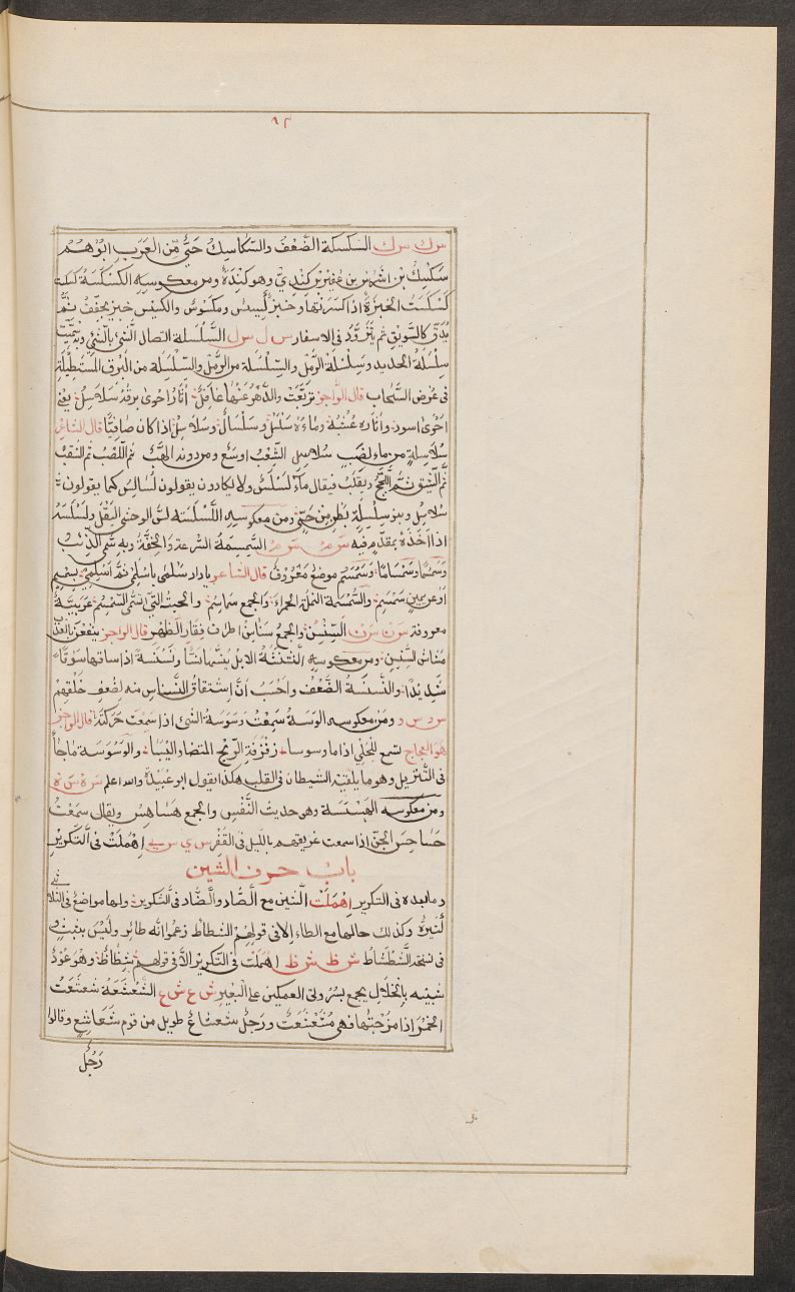 ٩٢
س ك س ك السكسكة الضعف والسكاسك حي من العرب ابوهم
سكسك بن اشرس بن كندي وهو كندة ومن معكوسه الكسكسة
كسكست الخبزة اذا كسرتها وخبز كسيس ومكسوس والكسيس خبز يجفف ثم
يدق كالسويق ثم يتزود فى الاسفار س ل س ل السلسلة اتصال الشئ بالشئ وبه سميت
سلسلة الحديد وسلسلة الرمل والسلسلة من الرمل والسلسلة من البرق المستطيلة
فى عرض السحاب قال الراجز تربعت والدهر عنها غافل اثار احوى برقه سلاسل يعني
احوى اسود واثاره عشبه وماء سلسل وسلسال وسلاسل اذا كان صافيا قال الشاعر
سلاسلة من ماء لصب سلاسل الشعب اوسع ومن دونه اللهب ثم اللصب ثم الشقب
ويقلب فيقال ماء لسلس ولا يكادون يقولون لسالس كما يقولون
سلاسل وبنو سلسلة بطن من حي ومن معكوسه اللسلسة لس الوحشي البقل ولسلسه
اذا اخذه بمقدم فيه س م س م السمسمة السرعة والخفة وبه سمي الذئب
وسمسما وسمساما وسمسم موضع معروف قال الشاعر يادار سلمى يا اسلمي ثم اسلمي بسمسم
او عن يمين سمسم والسمسمة النملة الحمراء والجمع سماسم والحبة التي تسمى السمسم عربية
معروفة س ن س ن السنسن والجمع سناسن اطراف فقار الظهر قال الراجز ينفعن
ومن معكوسه النسنسة الابل ينسها نسا ونسنسة اذا ساقها سوقا
شديدا والنسنسة الضعف واحسب ان اشتقاق النسناس منه لضعف خلقهم
س و س و ومن معكوسه الوسوسة سمعت وسوسة الشئ اذا سمعت حركته قال الراجز
هو العجاج تسمع للحلي اذا ما وسوسا زفزفة الريح اليبسا والوسوسة ما جاء
فى التنزيل وهو ما يلقيه الشيطان فى القلب هكذا يقول ابو عبيدة والله اعلم س ه س ه
ومن معكوسه الهسهسة وهو حديث النفس والجمع هساهس ويقال سمعت
هساهس الجن اذا سمعت عزيفهم بالليل فى القفر س ي س ي اهملت فى التكرير
باب حرف الشين
وما بعده فى التكرير اهملت الشين مع الصاد والضاد فى التكرير ولها مواضع فى الثلاثي
كثيرة وكذلك حالها مع الطاء الا فى قولهم الشطشاط زعموا انه طائر وليس بثبت و
فى نسخة الشطشاط ش ظ ش ظ اهملت فى التكرير الا فى قولهم شظاظ وهو عود
شبيه بالخلال يجمع بين ولي العكمين على البعير ش ع ش ع الشعشعة شعشعت
الخمر اذا مزجتها فهي مشعشعة ورجل شعشاع طويل من قوم شعاشع وقالوا
رجل